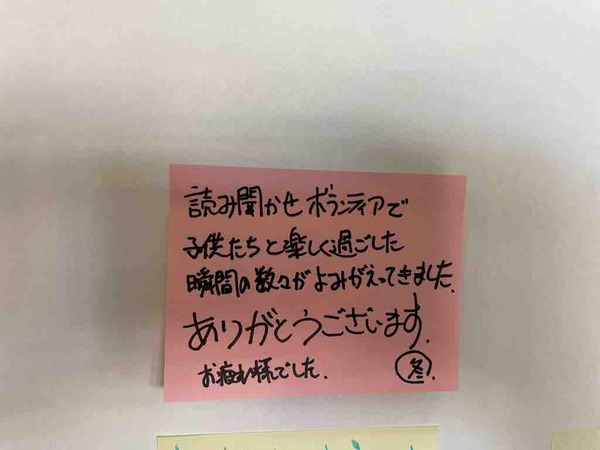 読み聞かせボランティアで
子供たちと楽しく過ごした
瞬間の数々がよみがえってきました.
ありがとうございます.
お疲れ様でした.
冬.